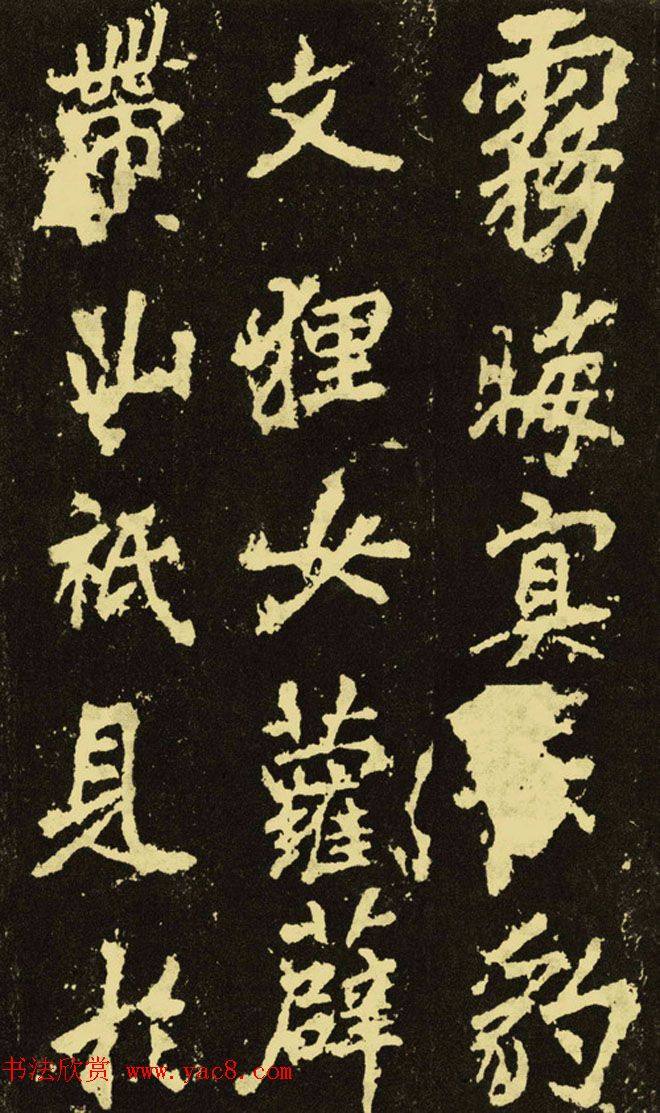 霧晦冥豹
文狸女蘿薜
帶山祇見於
书法欣赏 www.yac8.com